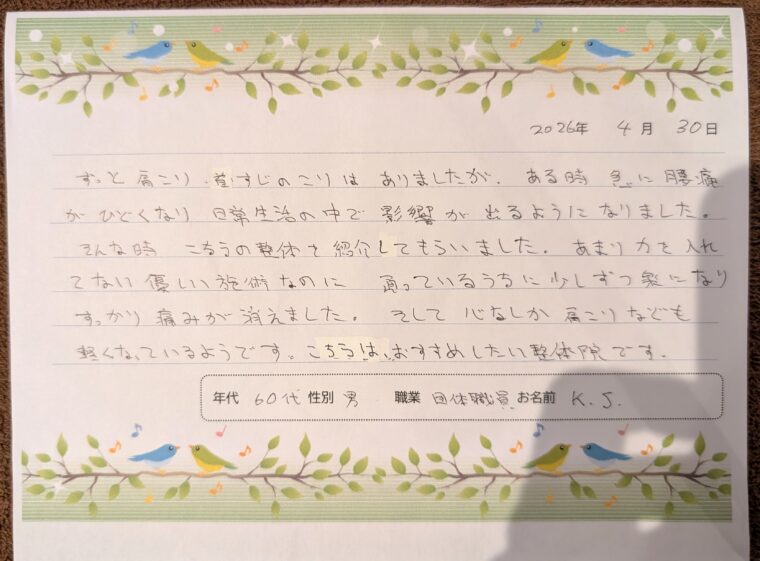 2026年 4月 30日
ずっと肩こり・首すじのこりは ありましたが、ある時 急に腰痛
がひどくなり 日常生活の中で 影響が 出るようになりました。
そんな時 こちらの整体を紹介してもらいました。あまり力を入れ
てない優しい施術なのに 通っているうちに少しずつ楽になり
すっかり痛みが消えました。そして 心なしか 肩こりなども
軽くなっているようです。こちらは、おすすめしたい整体院です。
年代 60代 性別 男 職業 団体職員 お名前 K.J.